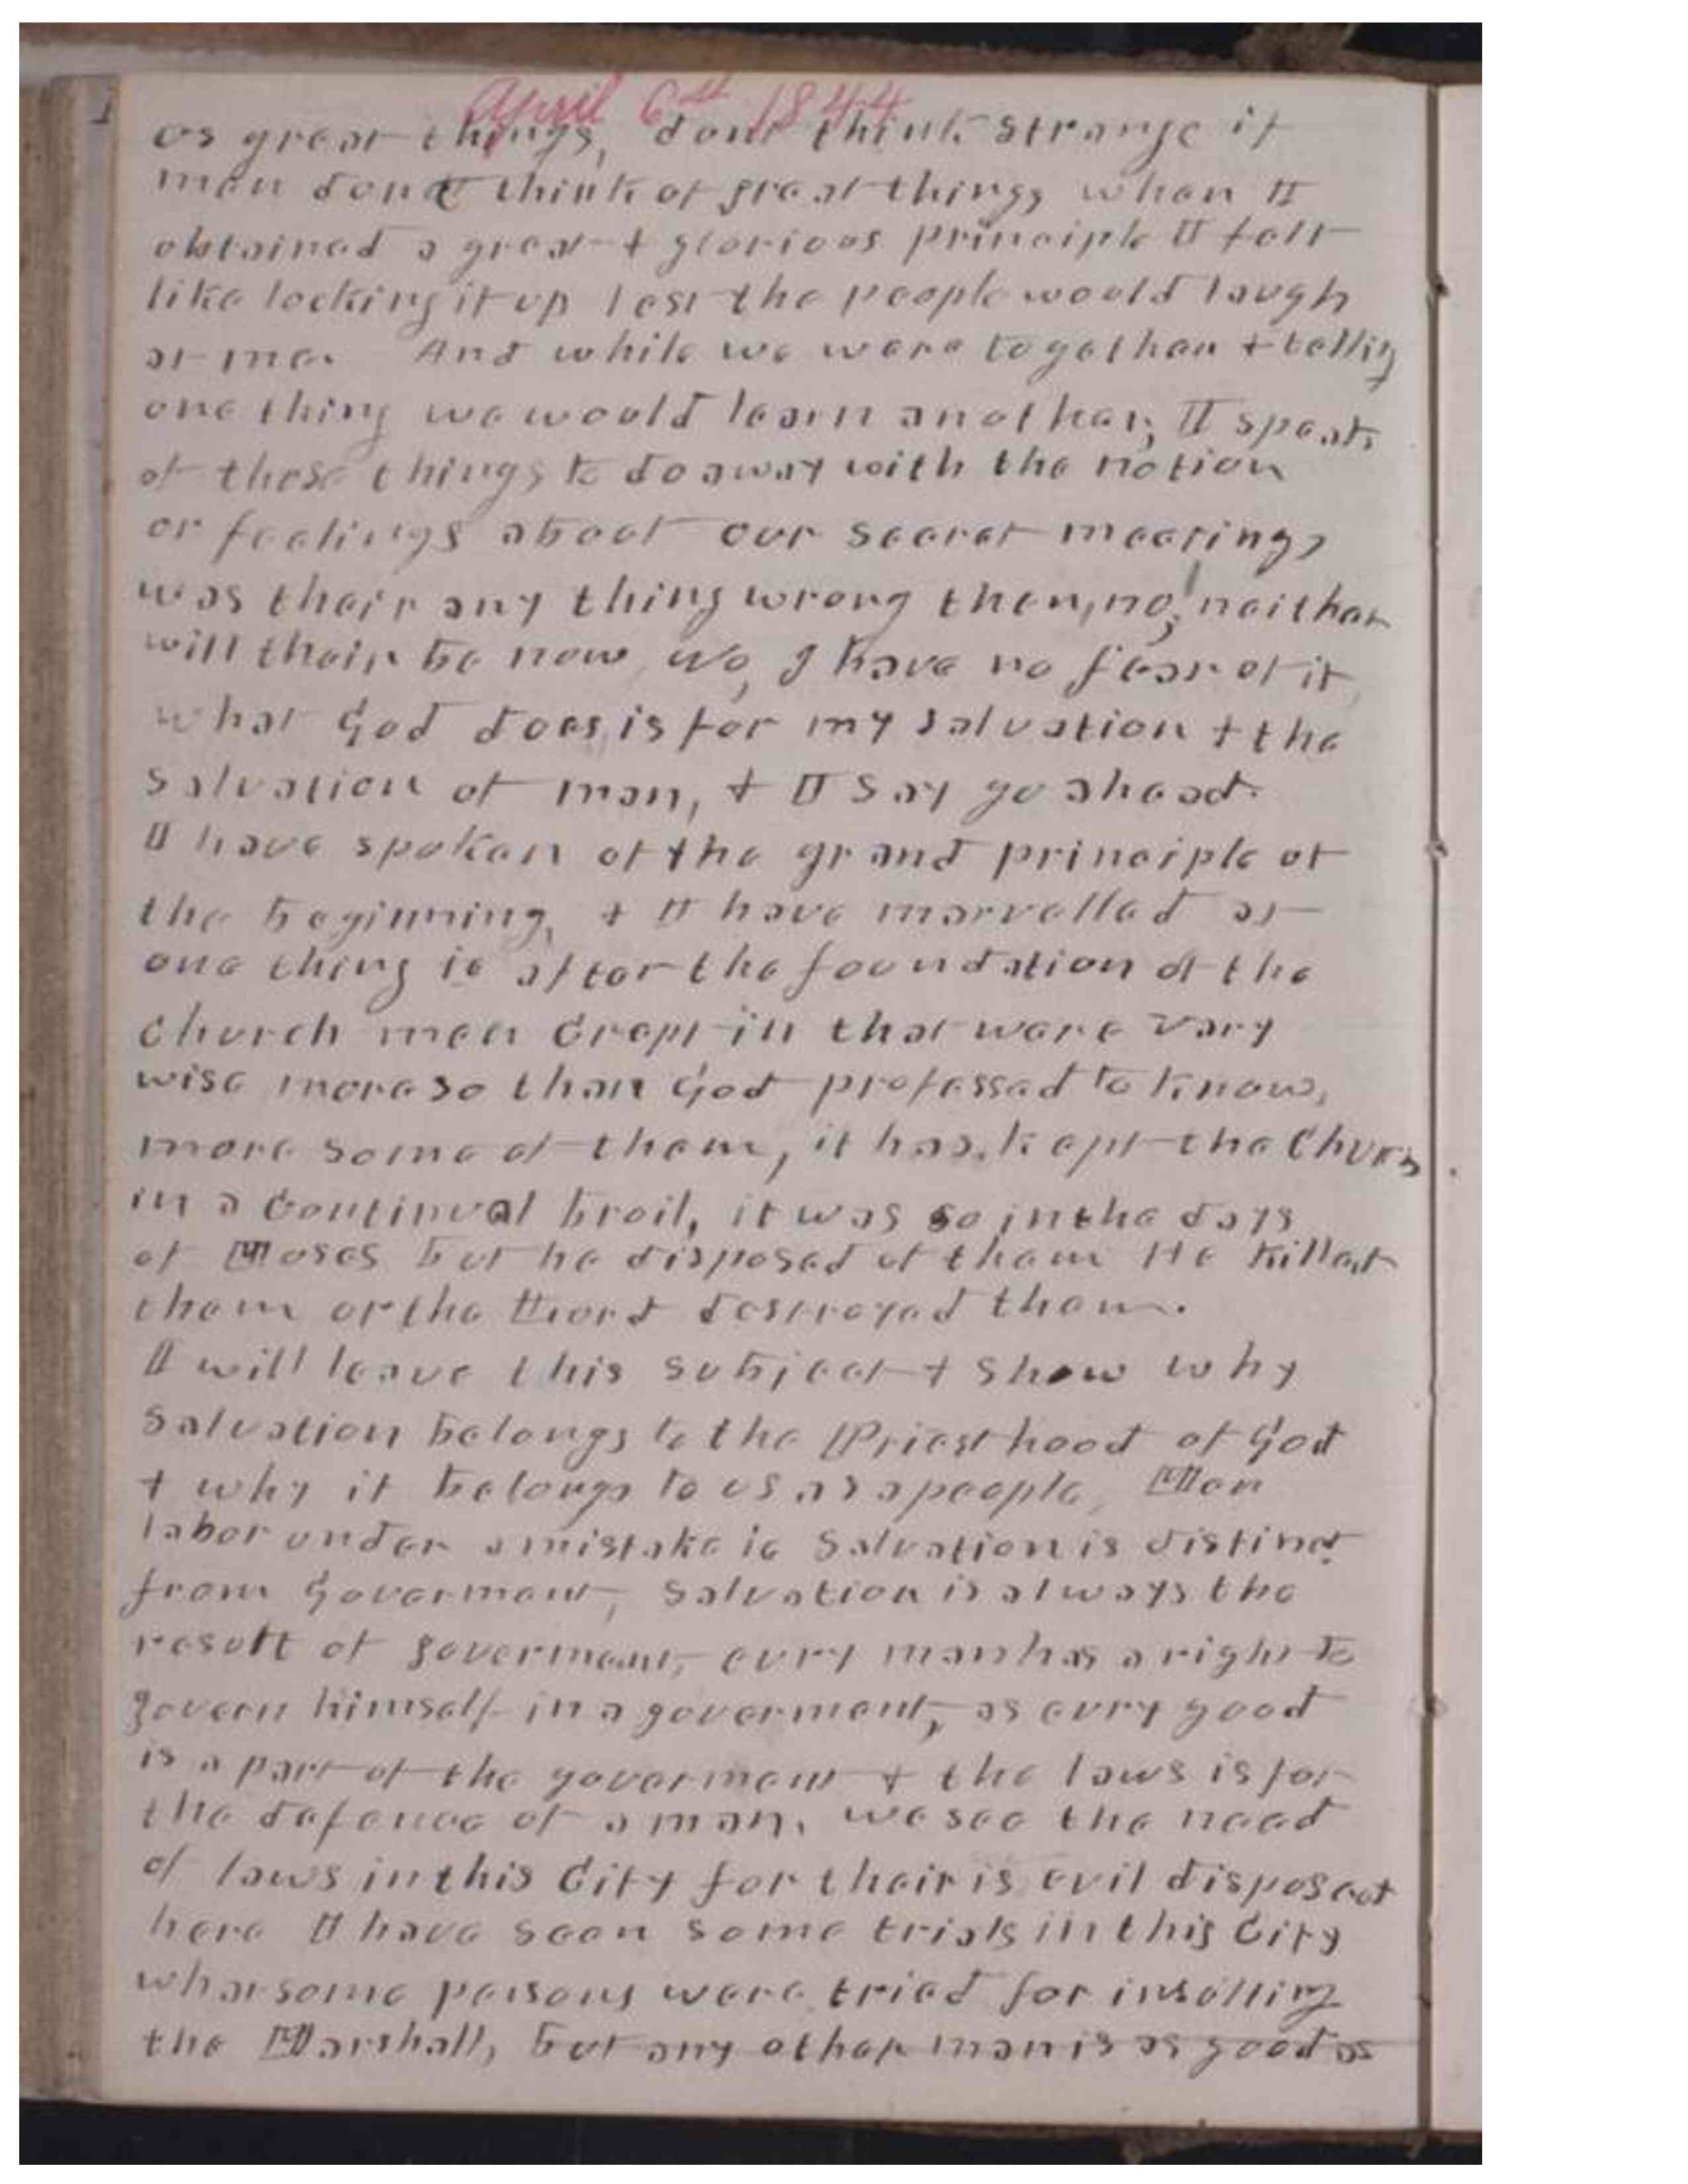 April 6th 1844
as great things, dont think strange if
men dont think of great things when I
obtained a great + glorious principle I felt
like locking it up lest the people would laugh
at me. And while we were together + telling
one thing we would learn another; I speak
of these things to do away with the notion
or feelings about our secret meetings
was their any thing wrong then, no! neither
will their be now, No, I have no fear of it,
what God does is for my salvation + the
salvation of man, + I say go ahead.
I have spoken of the grand principle of
the beginning, + I have marvelled at
one thing ie after the foundation of the
Church men crept in that were very
wise more so than God professed to know,
more some of them, it has kept the Church
in a continual broil, it was so in the days
of Moses but he disposed of them He killed
them or the Lord destroyed them.
I will leave this subject + show why
Salvation belongs to the Priesthood of God
+ why it belongs to us as a people, Men
labor under a mistake ie Salvation is distinct
from Goverment, Salvation is always the
result of goverment, evry man has a right to
govern himself in a goverment, as evry good
is a part of the goverment + the laws is for
the defence of a man. we see the need
of laws in this City for their is evil disposed
here I have seen some trials in this City
whar some persons were tried for insulting
the Marshall, but any other man is as good as